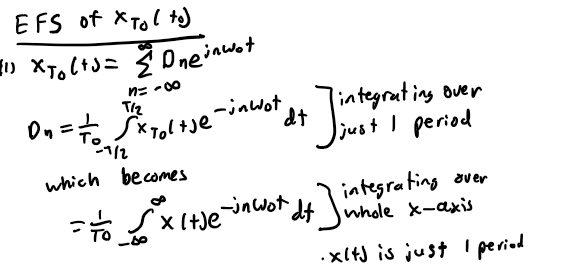 EFS of x_{T0}(t_0)
(1) x_{T0}(t) = ∞Σn=-∞ D_n e^{jnω_0t}
D_n = 1/T_0 ∫_{-T/2}^{T/2} x_{T0}(t)e^{-jnω_0t} dt ] integrating over just 1 period
which becomes
= 1/T_0 ∫_{-∞}^{∞} x(t)e^{-jnω_0t} dt ] integrating over whole x-axis
· x(t) is just 1 period